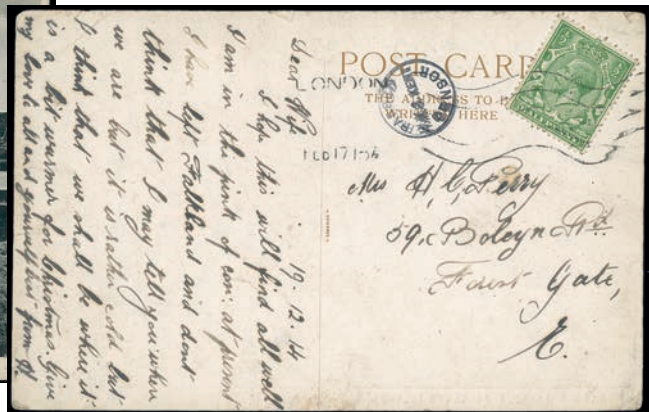 POST CARD
THE ADDRESS TO BE
WRITTEN HERE
LONDON
CENSOR
Mrs H. C. Perry
59. Boleyn Rd
Forest Gate,
E.
19.12.14
Dear Wife
I hope this will find all well
I am in the pink of con: at present
I have left Falkland and dont
think that I may tell you where
we are but it is rather cold but
I think that we shall be where it
is a bit warmer for Christmas. Give
my love to all and yourself best from H.